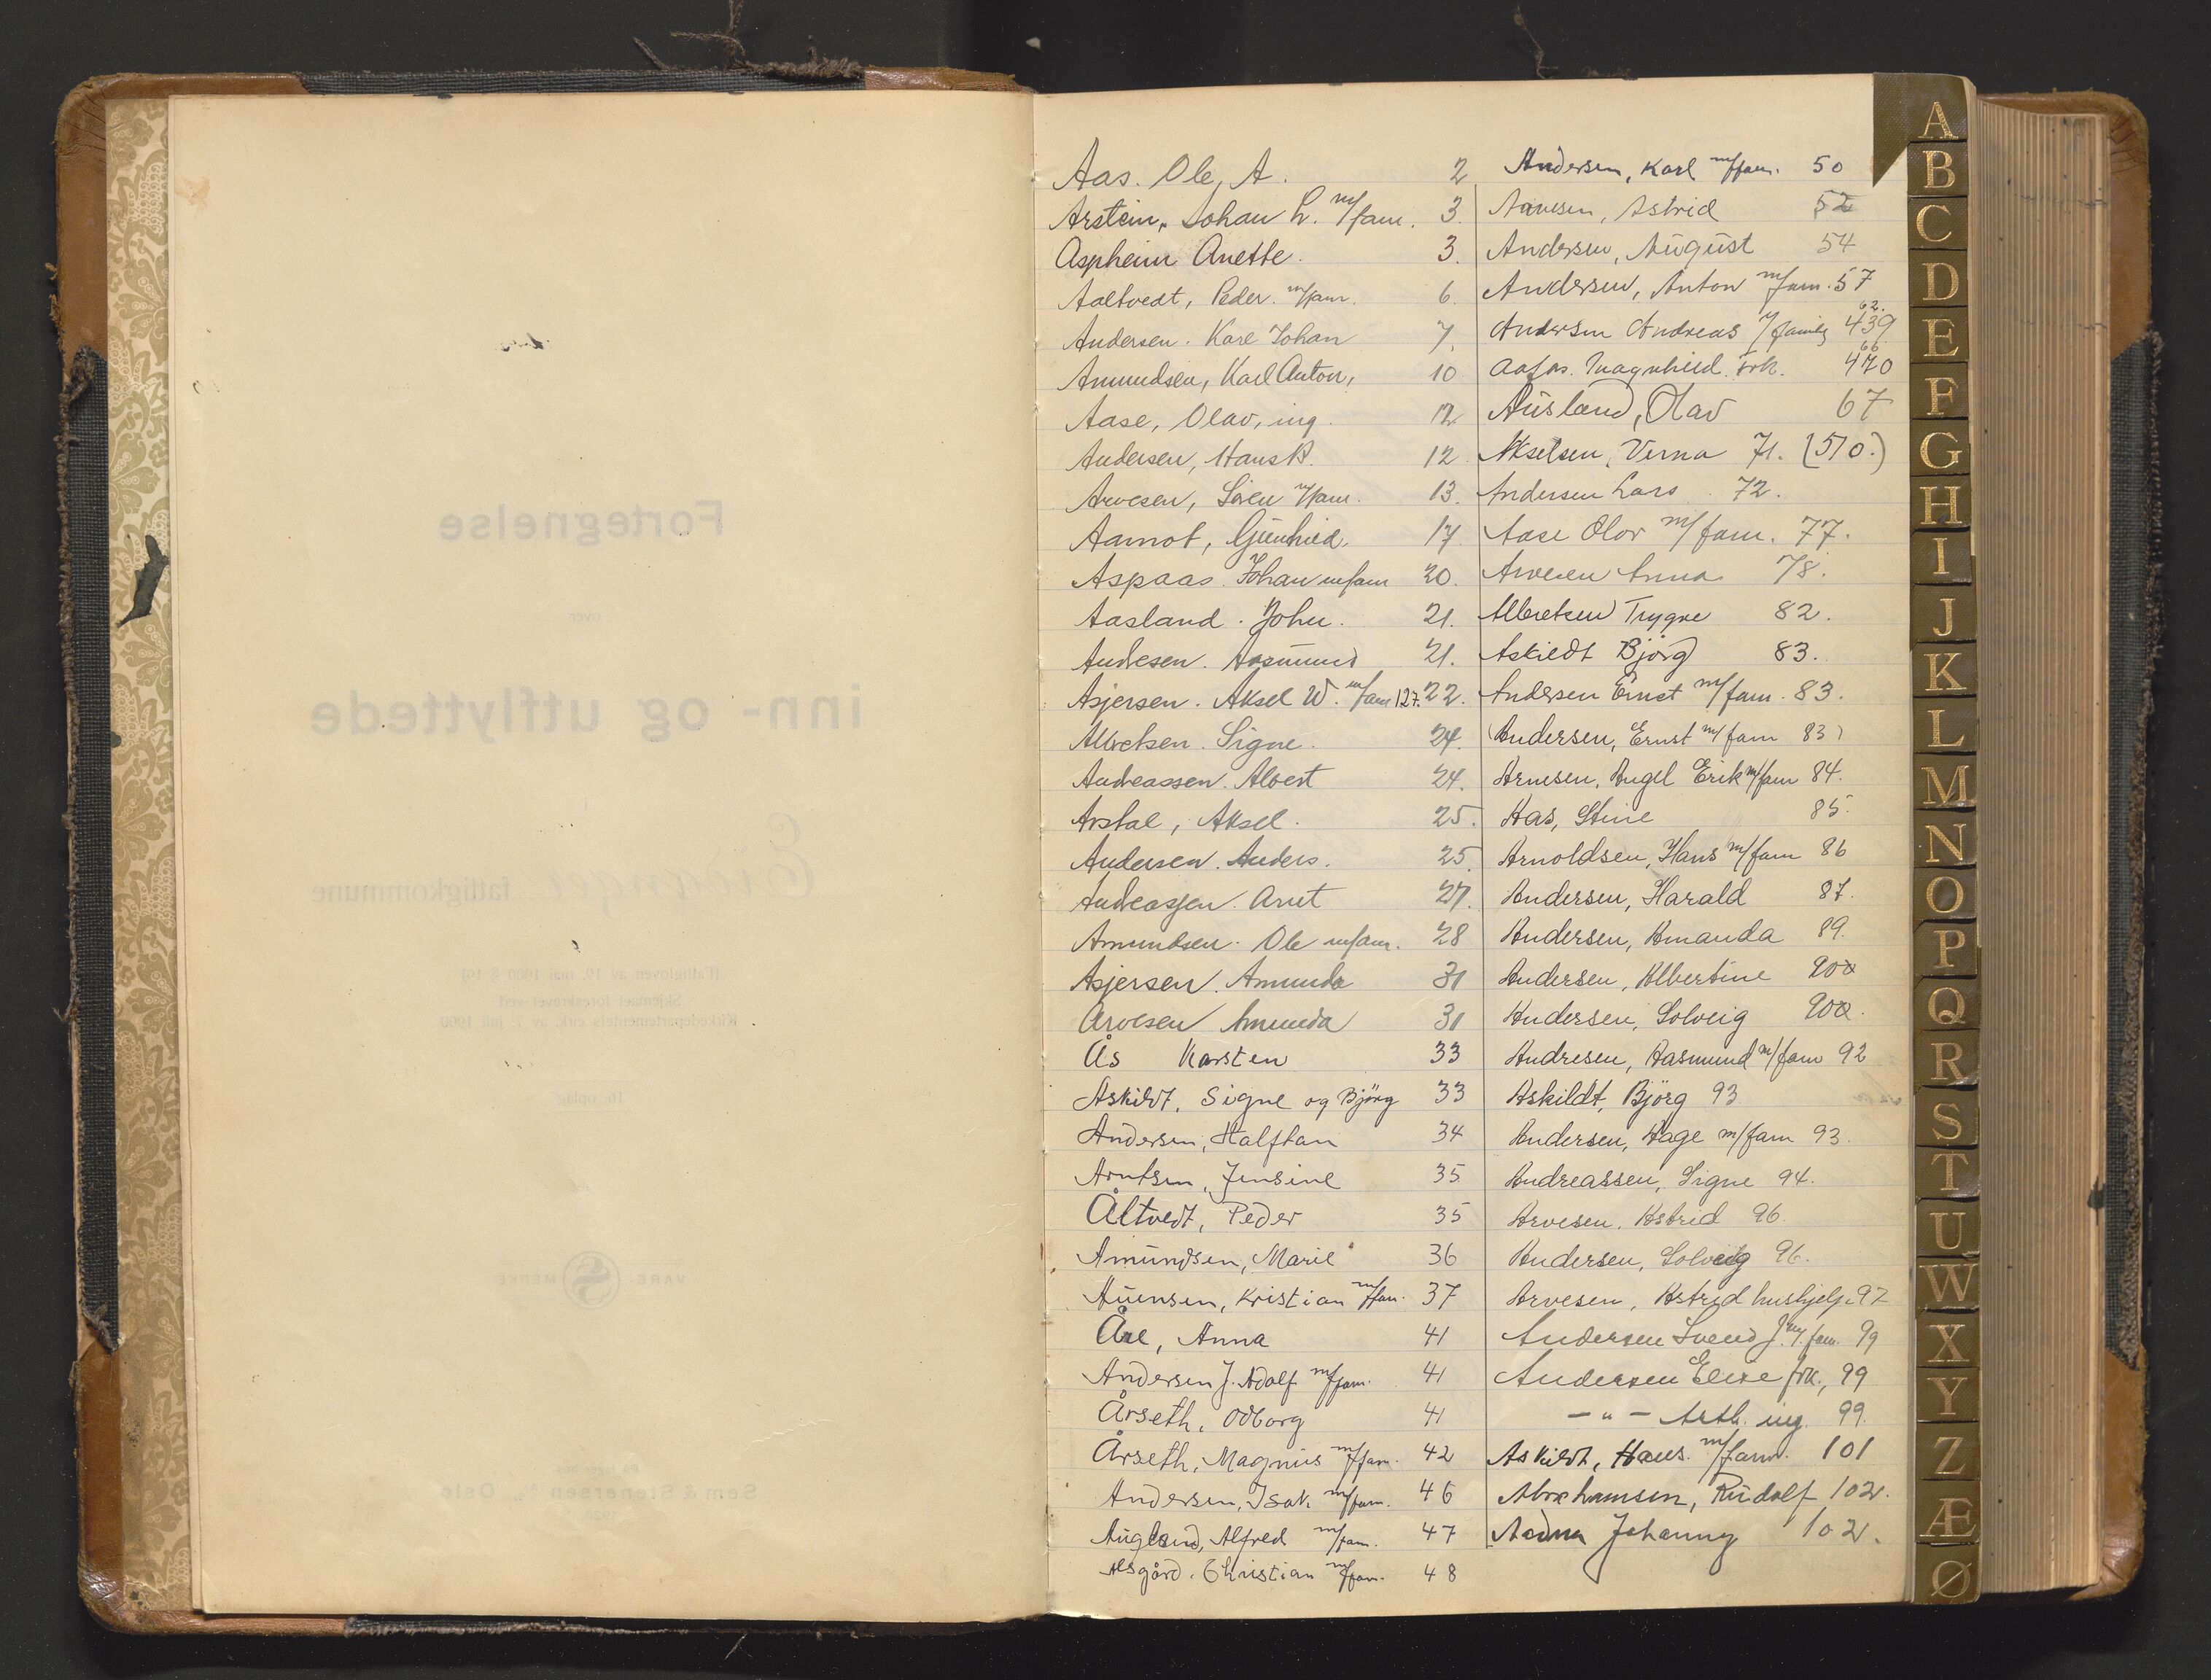 Fortegnelse
over
inn- og utflyttede
Eidanger fattigkommune
(Fattigloven av 19. mai 1900 § 19)
Skjemaet foreskrevet ved
Kirkedepartementets cirk. av 7. juli 1900
10. oplag
VARE MERKE
Sem & Stenersen A/S Oslo
Aas. Ole, A. 2
Arstein, Johan L. m/fam. 3.
Aspheim Anette. 3.
Aaltvedt, Peder. m/fam. 6.
Andersen. Karl Johan 7.
Amundsen, Karl Anton, 10
Aase, Olav, ing. 12
Andersen, Hans K. 12
Arvesen, Søren m/fam. 13.
Aamot, Gunhild. 17
Aspaas. Johan m/fam 20.
Aasland. John. 21.
Andresen. Aasmund 21.
Asjersen. Aksel W. m/fam 127. 22.
Albretsen. Signe. 24.
Andreassen. Albert 24.
Arstal, Aksel. 25.
Andersen. Anders. 25
Andreassen. Arnt 27.
Amundsen. Ole m/fam. 28
Asjersen. Amunda 31
Arvesen Amunda 31
Ås Karsten 33
Askildt, Signe og Bjørg 33
Andersen, Halftan 34
Arntsen, Jensine 35
Åltvedt, Peder 35
Amundsen, Marie 36
Auensen, Kristian m/fam. 37
Åse, Anna 41
Andersen J. Adolf m/fam. 41
Årseth, Odborg 41
Årseth, Magnus m/fam. 42
Andersen, Isak m/fam. 46
Augland, Alfred m/fam. 47
Alsgård. Christian m/fam. 48
Andersen, Karl m/fam. 50
Arvesen, Astrid 52
Andersen, August 54
Andersen, Anton m/fam. 57
Andersen Andreas m/family 439 62.
Aafos. Magnhild. frk. 470 66
Ausland, Olav 67
Akselsen, Verna 71. (510.)
Andersen Lars 72.
Aase Olav m/fam. 77.
Arvesen Anna 78.
Albretsen Trygve 82.
Askildt Bjørg 83.
Andersen Ernst m/fam. 83.
(Andersen, Ernst m/fam 83)
Arnesen, Angel Erik m/fam 84.
Aas, Stine 85.
Arnoldsen, Hans m/fam 86
Andersen, Harald 87.
Andersen, Amanda 89.
Andersen, Albertine 90
Andersen, Solveig 90
Andresen, Aasmund m/fam 92
Askildt, Bjørg 93
Andersen, Aage m/fam 93.
Andreassen, Signe 94.
Arvesen, Astrid 96
Andersen, Solveig 96.
Arvesen, Astrid hushjelp. 97
Andersen Svend J. m/fam. 99
Andersen Elise frk., 99
— " — Arth. ing. 99.
Askildt, Hans. m/fam. 101
Abrahamsen, Rudolf 102.
Johanny 102.
A
B
C
D
E
F
G
H
I
J
K
L
M
N
O
P
Q
R
S
T
U
W
X
Y
Z
Æ
Ø